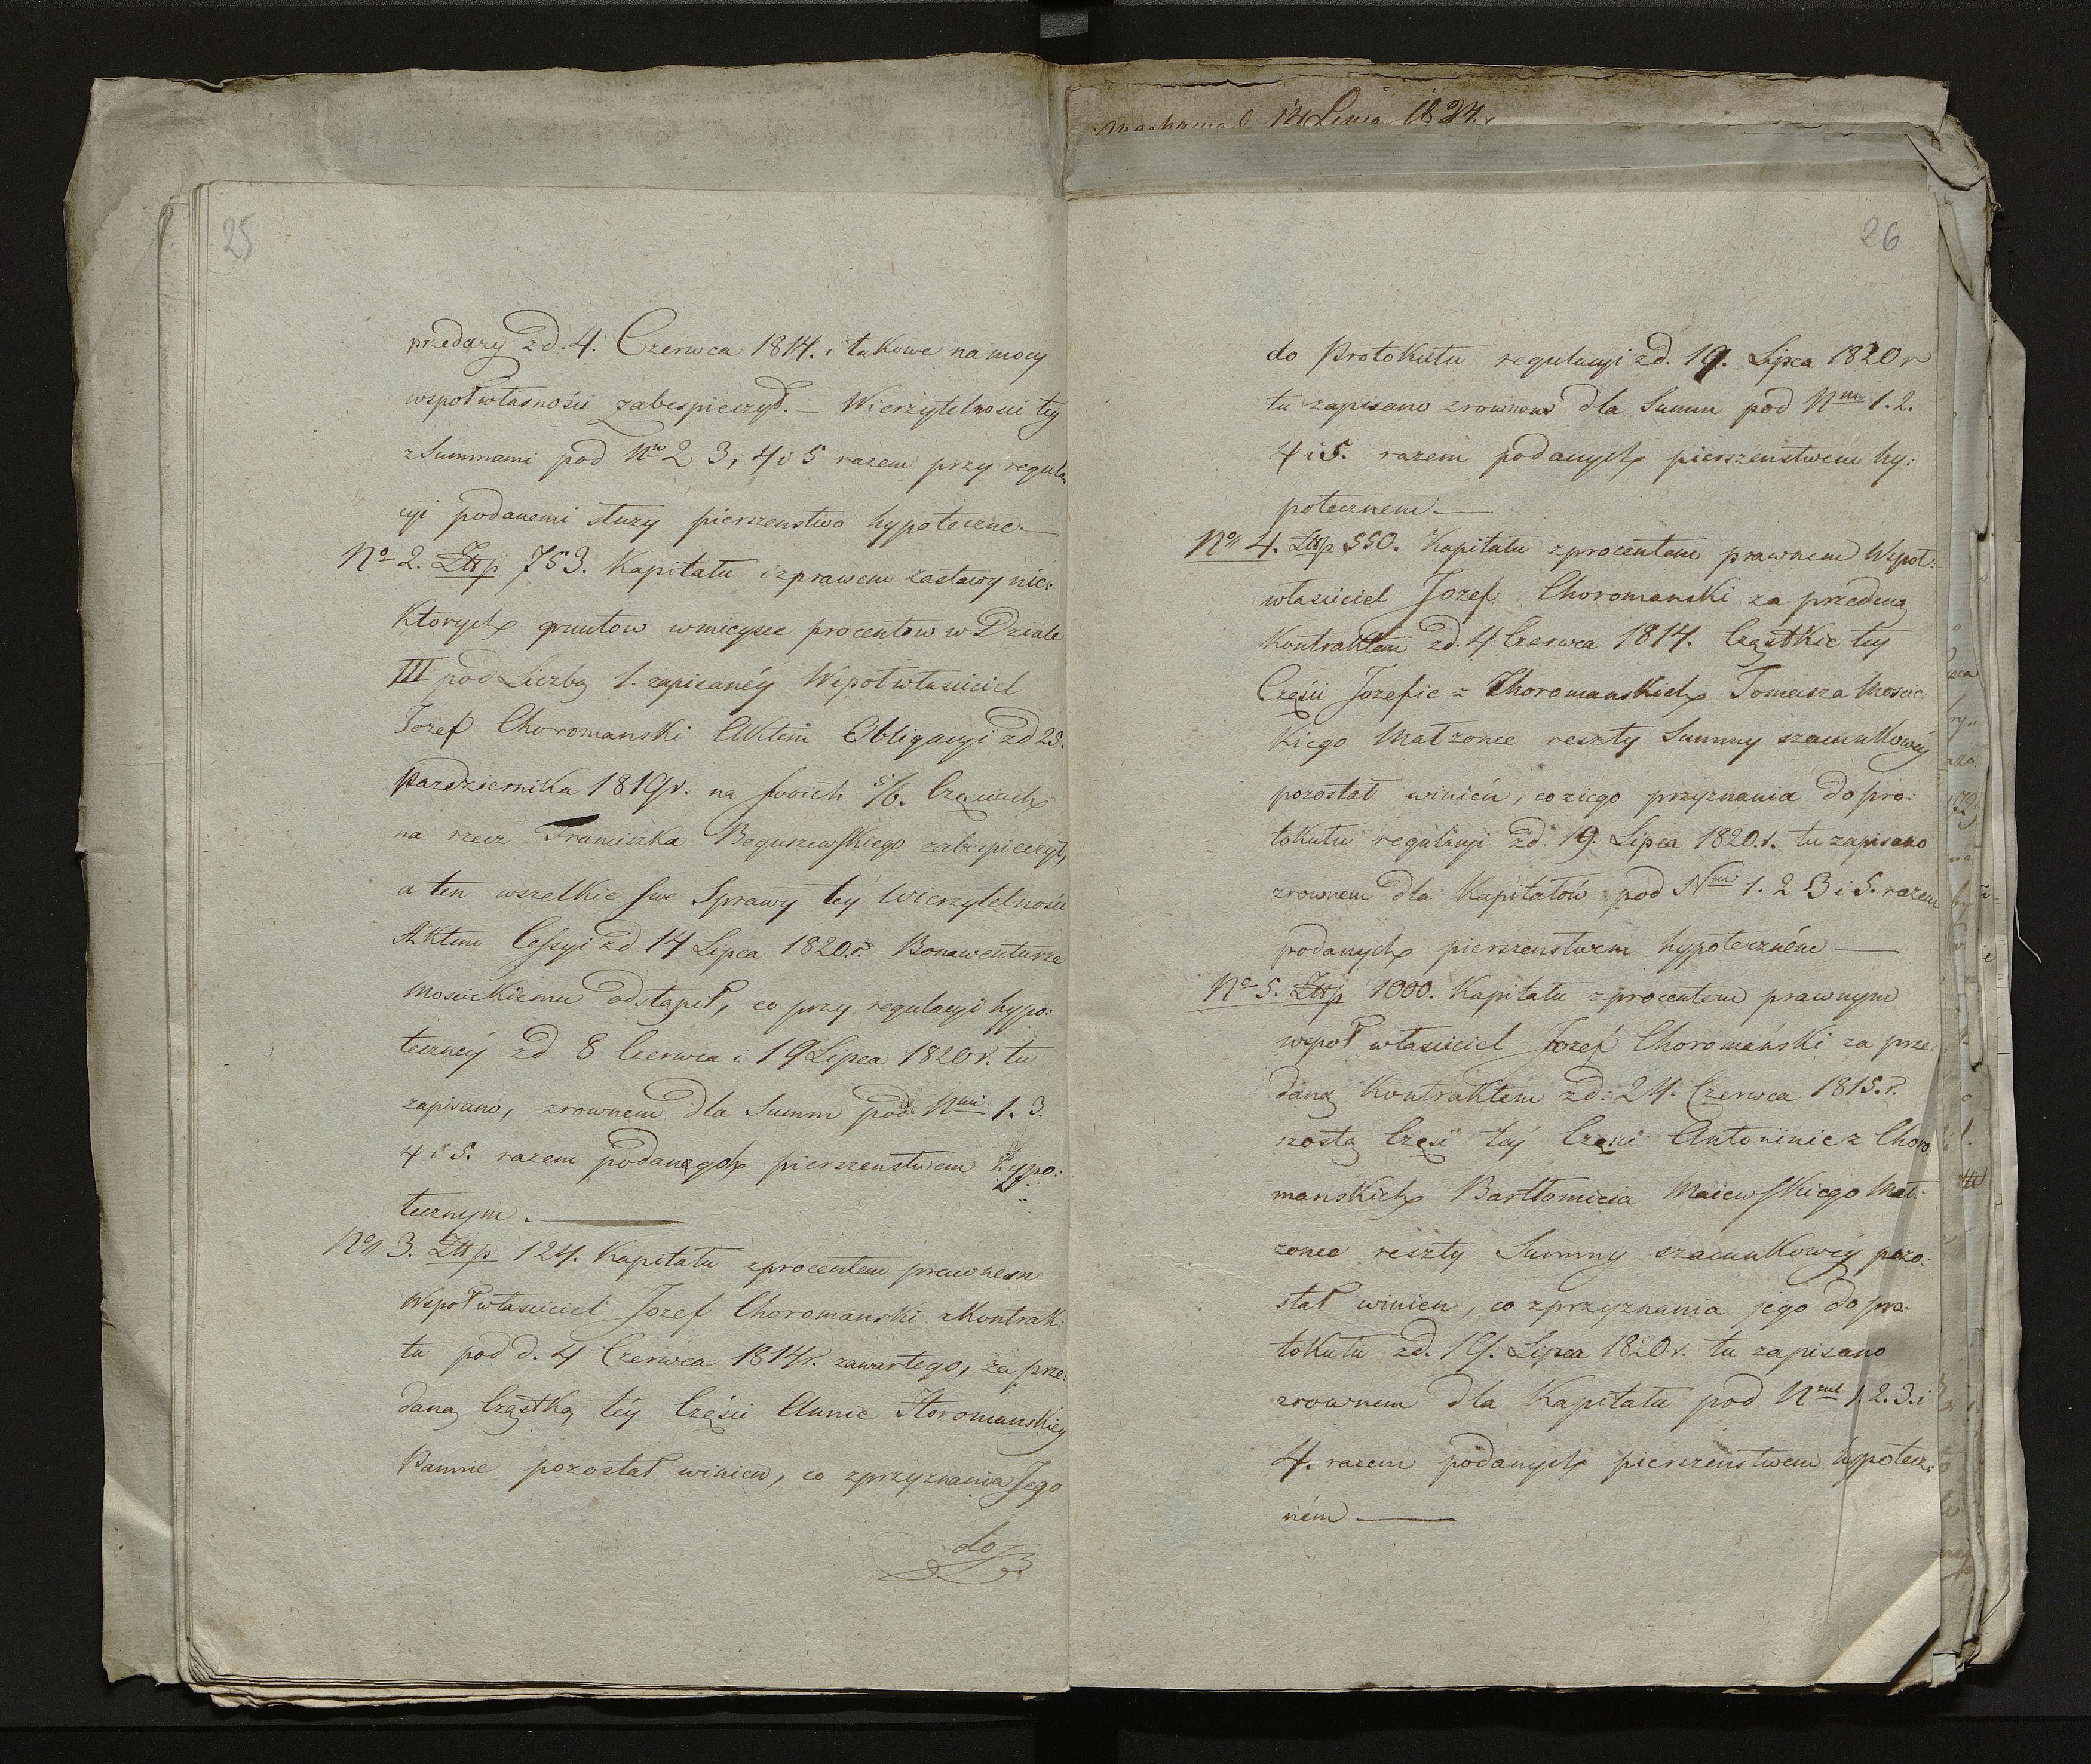 25
przedaży zd. 4. Czerwca 1814. i takowe na mocy
wspołwłasności zabespieczył. — Wierzytelności tey
z Summami pod Nro 2 3, 4 i 5 razem przy regula-
cyi podanemi służy pierszenstwo hypoteczne. —
No 2. Złłp 753. Kapitału i z prawem zastawy nie:
ktorych gruntow w mieysce procentow w Dziale
III pod Liczbą 1. zapisanéy Wspoł właściciel
Jozef Choromanski Aktem Obligacyi zd 25.
Pazdziernika 1819 r. na swoich 5/6. Częściach
na rzecz Franciszka Boguszewskiego zabespieczył,
a ten wszelkie swe Sprawy tey Wierzytelności
Aktem Cessyi zd 14 Lipca 1820. r. Bonawenturze
Moscickiemu odstąpił, co przy regulacyi hypo:
teczney zd 8 Czerwca i 19 Lipca 1820 r. tu
zapisano, z rownem dla Summ pod Nmi 1. 3.
4 i 5. razem podanych pierszenstwem hypo:
tecznym. —
No 3. Złłp 124. Kapitału z procentem prawnem
Wspoł właściciel Jozef Choromanski z Kontrak:
tu pod d. 4 Czerwca 1814 r. zawartego, za prze:
daną Cząstką téy Części Annie Horomanskiey
Pannie pozostał winien, co z przyznania Jego
do
14 1824.
26
do Protokułu regulacyi zd. 19. Lipca 1820 r
tu zapisano z rownem dla Summ pod Nmi 1. 2.
4 i 5. razem podanych pierszenstwem hy:
potecznem. —
No 4. Złłp 550. Kapitału z procentem prawnem Wspoł:
właściciel Jozef Choromanski za przedaną
Kontraktem zd. 4 Czerwca 1814. Cząstkę tey
Części Jozefie z Choromanskich Tomasza Moscic:
kiego Małzonce reszty Summy szacunkowéy
pozostał winień, co z iego przyznania do pro:
tokułu regulacyi zd. 19. Lipca 1820. r. tu zapisano
z rownem dla Kapitałów pod Nmi 1. 2 3 i 5. razem
podanych pierszenstwem hypoteczném —
No 5. Złłp 1000. Kapitału z procentem prawnym
wspoł właściciel Jozef Choromański za prze:
daną Kontraktem zd: 24. Czerwca 1815. r.
szostą Część téy Części Antoninie z Choro:
manskich Bartłomieia Maiewskiego Mał:
zonce reszty Summy szacunkowéy pozo:
stał winien, co z przyznania jego do pro:
tokułu zd. 19. Lipca 1820 r. tu zapisano
z rownem dla Kapitału pod Nmi 1. 2. 3. i
4. razem podanych pierszenstwem hypotecz:
ném —